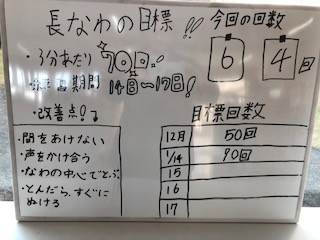 長なわの目標!!
今回の回数
・3分あたり70回!!
64回
期間 14日〜17日!
・改善点!
・間をあけない
・声をかけ合う
・なわの中心でとぶ
・とんだら、すぐに
ぬける
目標回数
12月 50回
1/14 90回
15
16
17